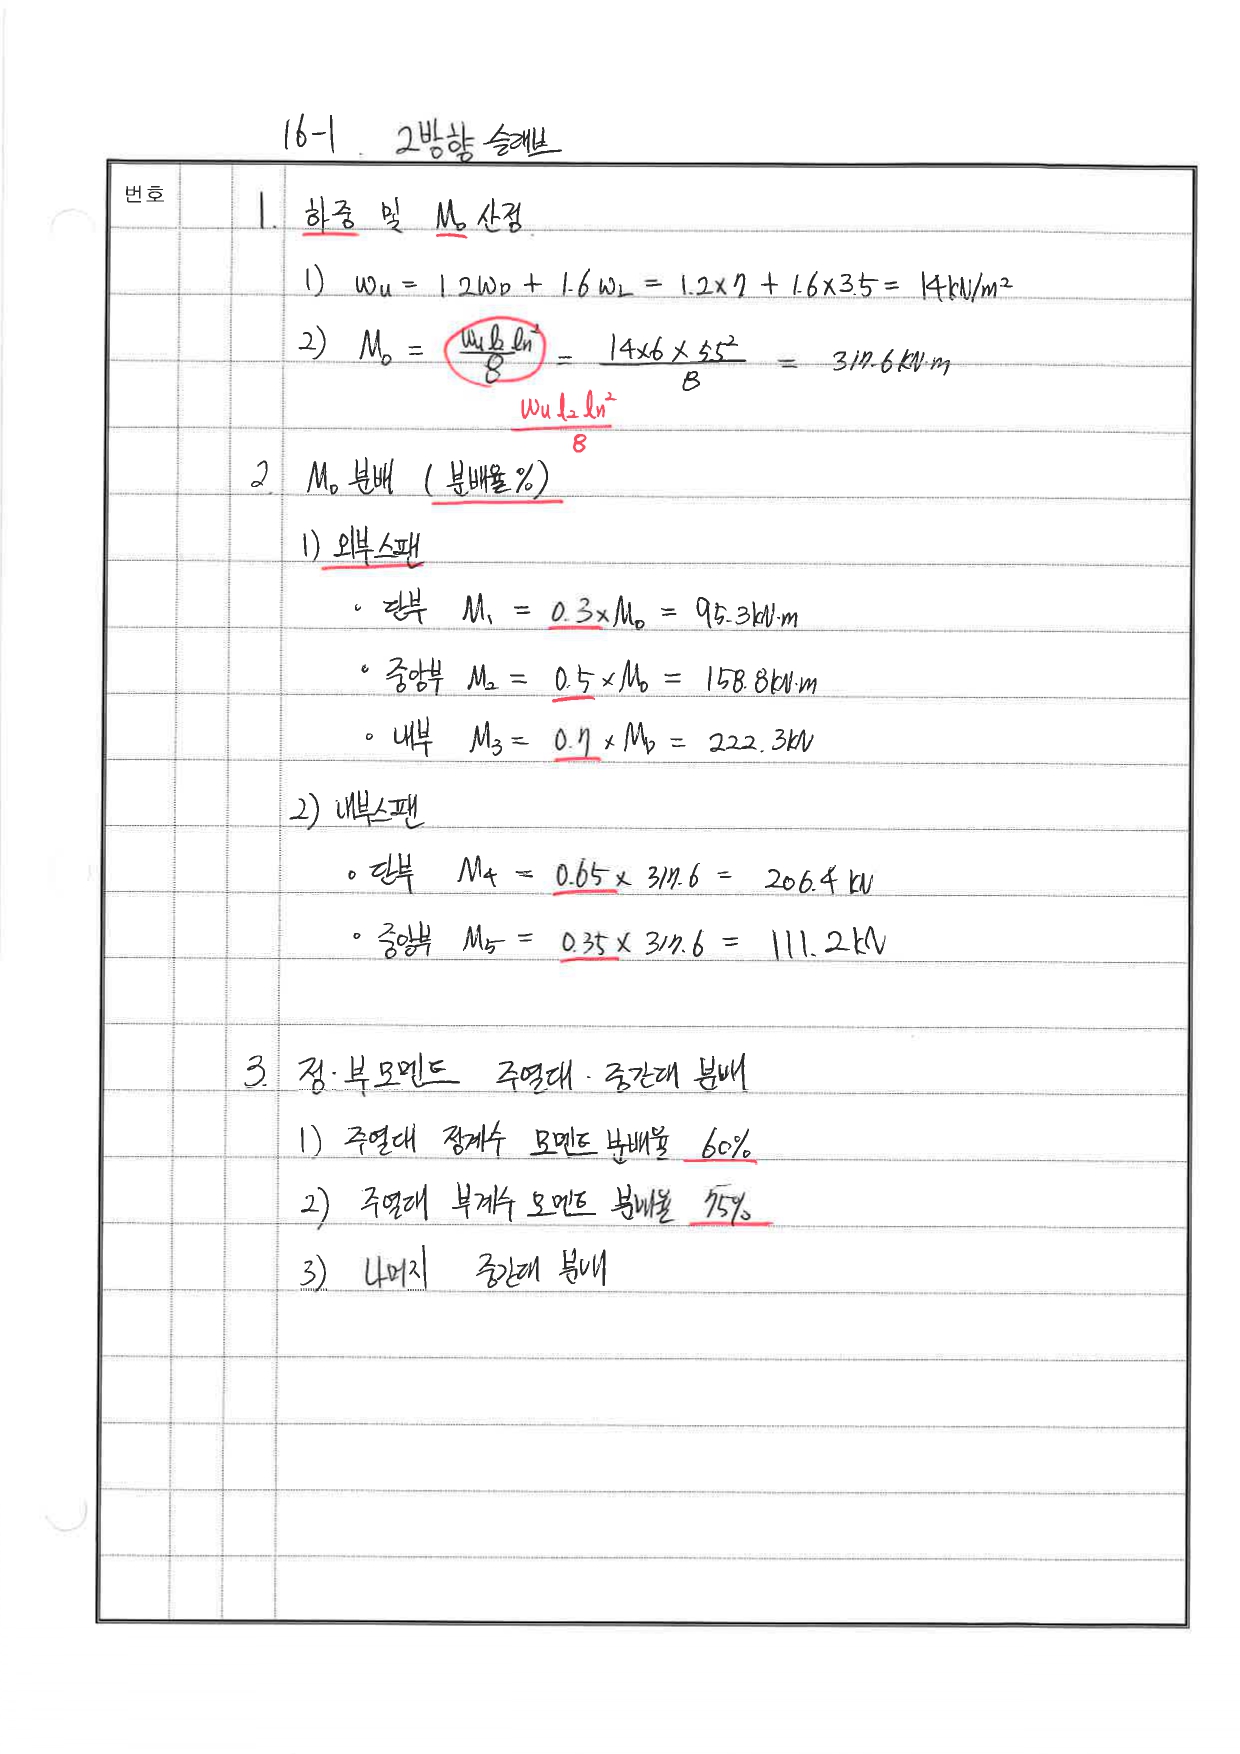 16-1. 2방향 슬래브
번호
1. 하중 및 M₀ 산정.
1) wu = 1.2wD + 1.6wL = 1.2×7 + 1.6×3.5 = 14kN/m²
2) M₀ = wu l₂ ln²/8 = 14×6×5.5²/8 = 317.6kN·m
wu l₂ ln²/8
2. M₀ 분배 (분배율%)
1) 외부스팬
· 단부 M₁ = 0.3×M₀ = 95.3kN·m
· 중앙부 M₂ = 0.5×M₀ = 158.8kN·m
· 내부 M₃ = 0.7×M₀ = 222.3kN
2) 내부스팬
· 단부 M₄ = 0.65× 317.6 = 206.4 kN
· 중앙부 M₅ = 0.35× 317.6 = 111.2kN
3. 정·부모멘트 주열대·중간대 분배
1) 주열대 정계수 모멘트 분배율 60%
2) 주열대 부계수 모멘트 분배율 75%
3) 나머지 중간대 분배